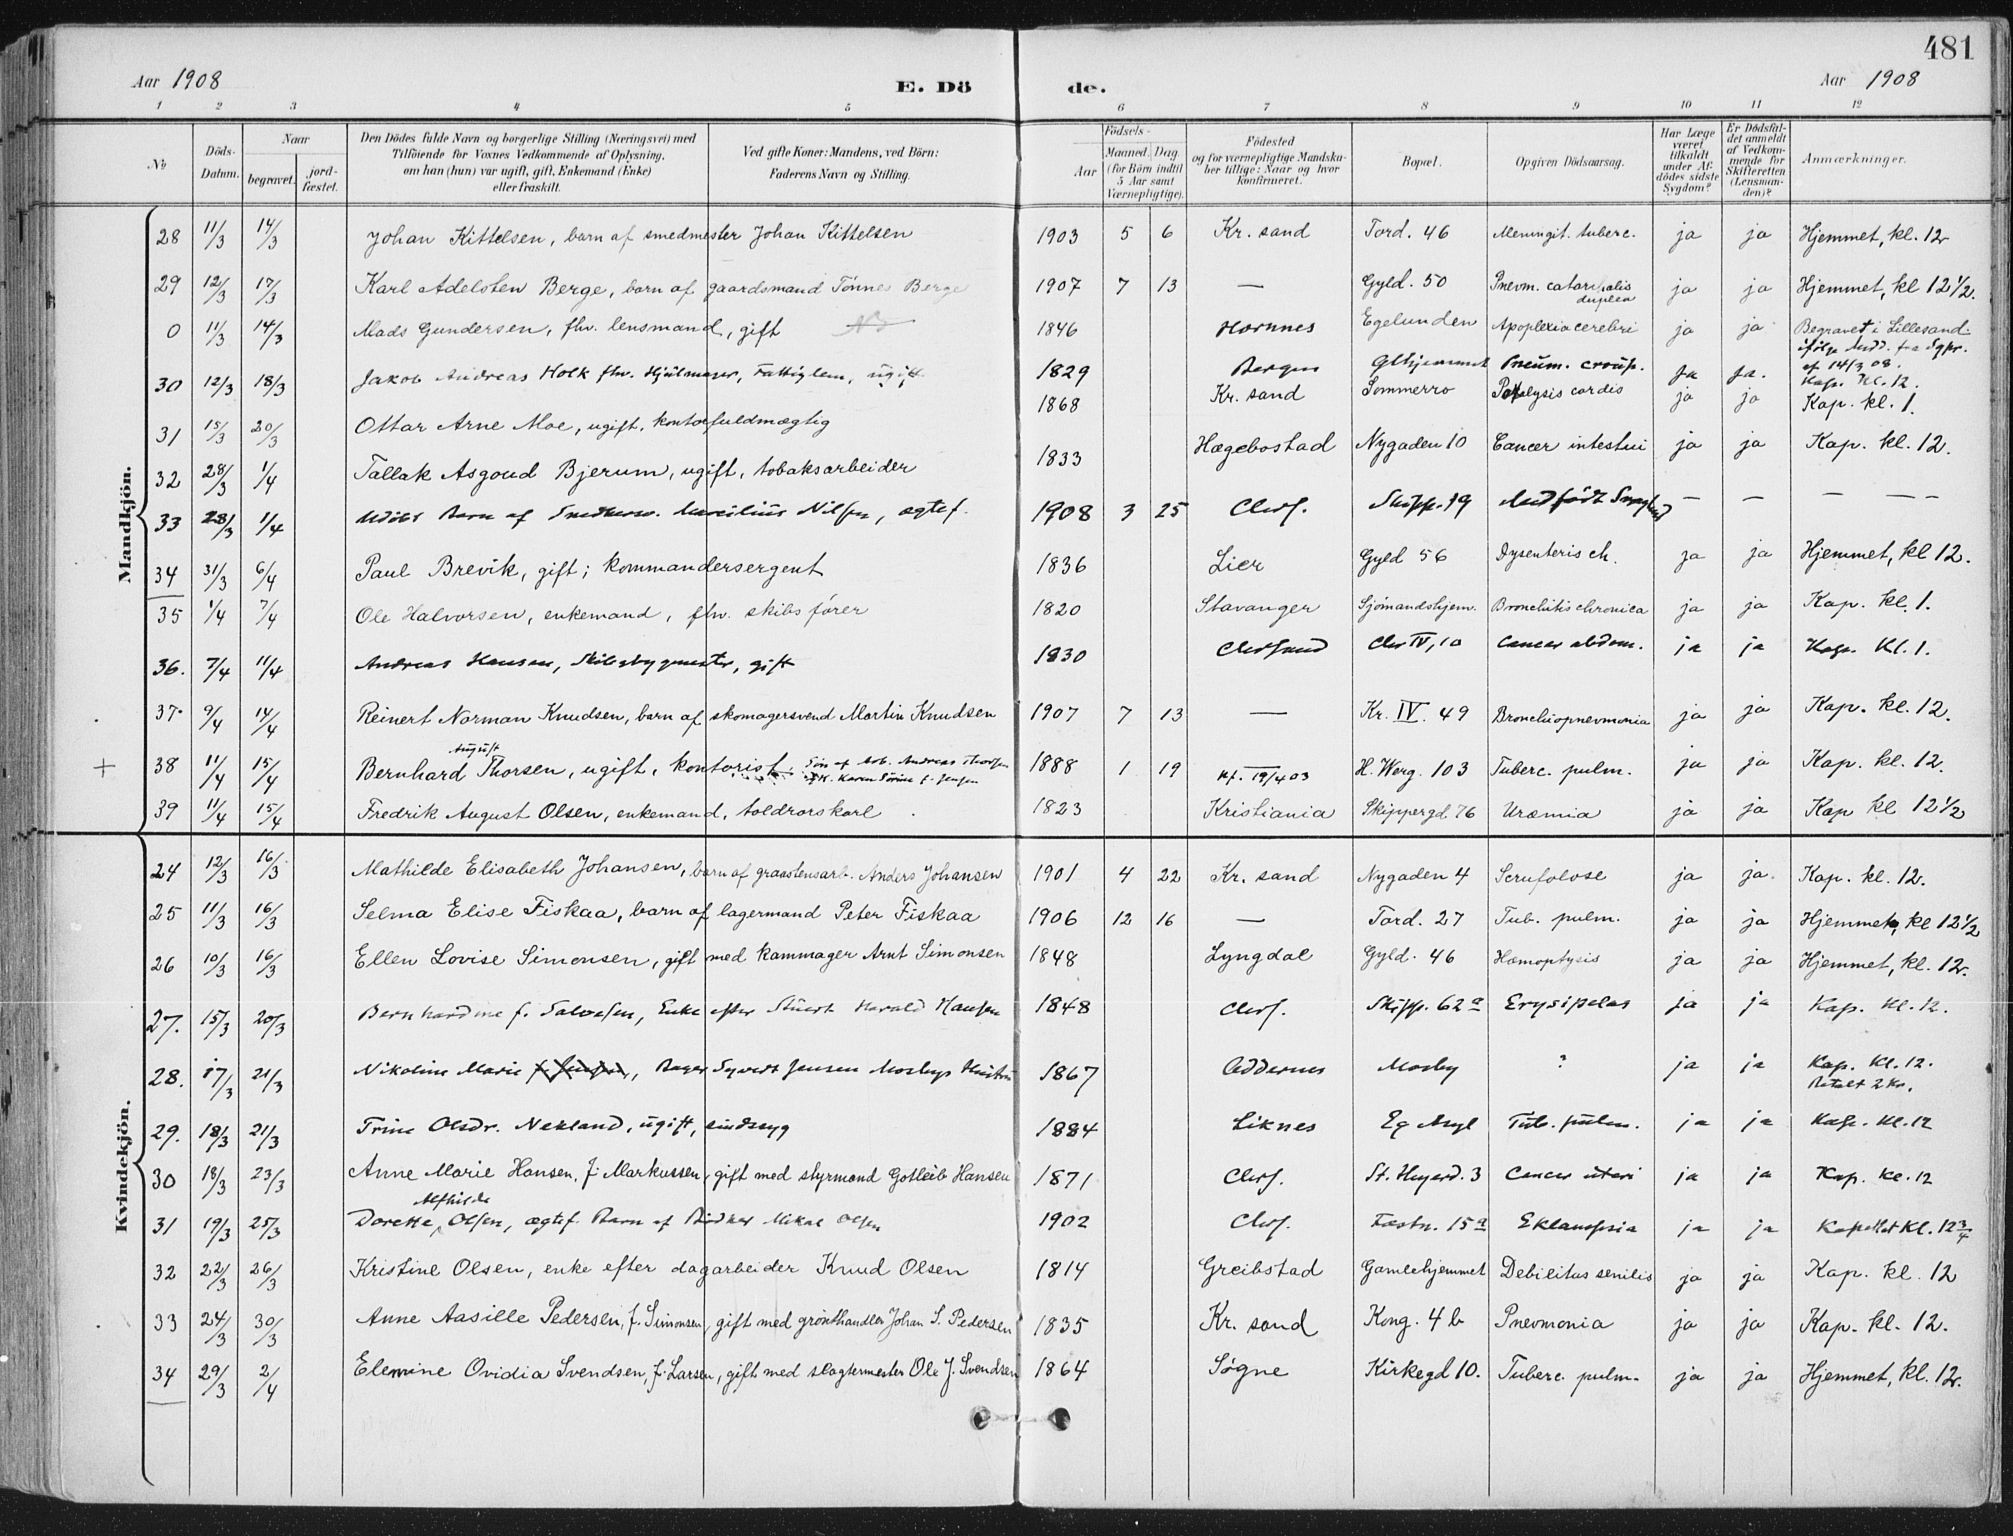 481
Aar 1908 E. Dö de. Aar 1908
1 2 3 4 5 6 7 8 9 10 11 12
No Döds-Datum. Naar begravet. jord-fæstet. Den Dödes fulde Navn og borgerlige Stilling (Næringsvei) med Tilföiende for Voxnes Vedkommende af Oplysning, om han (hun) var ugift, gift, Enkemand (Enke) eller fraskilt. Ved gifte Koner: Mandens, ved Börn: Faderens Navn og Stilling. Födsels- Aar Maaned. Dag. (for Börn indtil 5 Aar samt Værnepligtige). Födested og for værnepligtige Mandska-ber tillige: Naar og hvor konfirmeret. Bopæl. Opgiven Dödsaarsag. Har Læge været tilkaldt under Af-dödes sidste Sygdom? Er Dödsfal-det anmeldt af Vedkom-mende for Skifteretten (Lensman-den)? Anmærkninger.
Mandkjön.
28 11/3 14/3 Johan Kittelsen, barn af smedmester Johan Kittelsen 1903 5 6 Kr. sand Tord. 46 Meningit. tuberc. ja ja Hjemmet, kl. 12
29 12/3 17/3 Karl Adelsten Berge, barn af gaardsmand Tönnes Berge 1907 7 13 — Gyld. 50 Pnevm. catarrhalis duplea ja ja Hjemmet, kl 12 1/2.
0 11/3 14/3 Mads Gundersen, fhv. lensmand, gift 1846 Hornnes Egelunden Apoplexia cerebri ja ja Begravet i Lillesand ifölge Medd. fra Sgpr. af 14/3 08.
30 12/3 18/3 Jakob Andreas Holk fhv. Hjulmager, Fattiglem, ugift 1829 Bergen Glhjemmet Pneum. croup. Ja Ja. Kap. Kl. 12.
31 15/3 20/3 Ottar Arne Moe, ugift, kontorfuldmægtig 1868 Kr. sand Sommerro Paralysis cordis ja ja Kap. kl. 1.
32 28/3 1/4 Tallak Asgoud Bjerum, ugift, tobaksarbeider 1833 Hægebostad Nygaden 10 Cancer intestini ja ja Kap. kl. 12.
33 28/3 1/4 Udöbt Barn af Snedkersv. Marcilius Nilsen, ægtef. 1908 3 25 Chrs. Skipp. 19 Medfödt Svaghed — — — — —
34 31/3 6/4 Paul Brevik, gift; kommandersergent 1836 Lier Gyld 56 Dysenteris ch. ja ja Hjemmet, kl 12.
35 1/4 7/4 Ole Halvorsen, enkemand, fhv. skibsförer 1820 Stavanger Sjömandshjem. Bronchitis chronica ja ja Kap. kl. 1.
36. 7/4 11/4 Andreas Hansen, Skibsbygmester, gift 1830 Chrssand Chr IV, 10 Cancer abdom. ja ja Kap. Kl. 1.
37. 9/4 14/4 Reinert Norman Knudsen, barn af skomagersvend Martin Knudsen 1907 7 13 — Kr. IV. 49 Bronchiopnevmonia ja ja Kap. kl. 12.
+ 38 11/4 15/4 Bernhard August Thorsen, ugift, kontorist. Sön af Arb. Andreas Thorsen og H. Karen Tönine f. Jensen 1888 1 19 Kf. 19/4 03 H. Werg. 103 Tuberc. pulm. ja ja Kap. kl. 12.
39 11/4 15/4 Fredrik August Olsen, enkemand, toldrorskarl 1823 Kristiania Skippergd 76 Uræmia ja ja Kap kl 12 1/2
Kvindekjön.
24 12/3 16/3 Mathilde Elisabeth Johansen, barn af graastensarb. Anders Johansen 1901 4 22 Kr. sand Nygaden 4 Scrufolose ja ja. Kap. kl. 12.
25 11/3 16/3 Selma Elise Fiskaa, barn af lagermand Peter Fiskaa 1906 12 16 — Tord. 27 Tub. pulm. ja ja Hjemmet, kl 12 1/2
26 10/3 16/3 Ellen Lovise Simonsen, gift med kammager Arnt Simonsen 1848 Lyngdal Gyld. 46 Hæmoptysis ja ja Hjemmet, kl. 12.
27. 15/3 20/3 Bernhardine f. Salvesen, Enke efter Stuert Harald Hansen 1848 Chrs. Skipp. 62a Erysipelas ja ja Kap. Kl. 12.
28. 17/3 21/3 Nikoline Marie, Bager Syvert Jensen Mosbys Hustru 1867 Oddernes Mosby ? ja ja Kap. Kl. 12. Betalt 2 Kr.
29. 18/3 21/3 Trine Olsdr. Nekland, ugift, sindssyg 1884 Liknes Eg Asyl Tub. pulm. ja ja Kap. Kl. 12
30 18/3 23/3 Anne Marie Hansen, f. Markussen, gift med styrmand Gotleib Hansen 1871 Chrs. St. Hegerd. 3 Cancer uteri ja ja Kap. Kl. 12
31 19/3 25/3 Dorette Alfhilda Olsen, ægtef. Barn af Bödker Mikal Olsen 1902 Chrs. Fæstn. 15a Eklampsia ja ja Kapellet Kl. 12 3/4
32 22/3 26/3 Kristine Olsen, enke efter dagarbeider Knud Olsen 1814 Greibstad Gamlehjemmet Debilitas senilis ja ja Kap. kl. 12
33 24/3 30/3 Anne Aasille Pedersen, f. Simonsen, gift med grönthandler Johan S. Pedersen 1835 Kr. sand Kong. 4 b Pnevmonia ja ja Kap. kl. 12.
34 29/3 2/4 Elemine Ovidia Svendsen, f. Larsen, gift med slagtermester Ole J. Svendsen 1864 Søgne Kirkegd 10. Tuberc. pulm. ja ja Hjemmet, kl. 12.